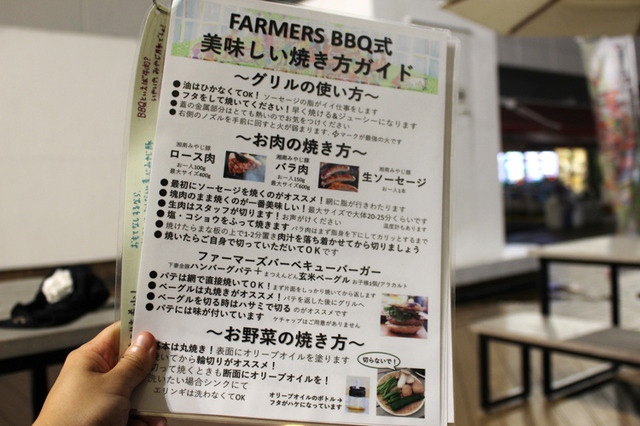 FARMERS BBQ式
美味しい焼き方ガイド
～グリルの使い方～
● 油はひかなくてOK！ソーセージの脂がイイ仕事をします
● フタをして焼いてください！早く焼ける&ジューシーになります
● 蓋の金属部分はとても熱いのでお気をつけください
● 右側のノズルを手前に回すと火が弱まります。マークが最強の火です
～お肉の焼き方～
湘南みやじ豚
ロース肉
お一人100g
最大サイズ400g
湘南みやじ豚
バラ肉
お一人150g
最大サイズ600g
湘南みやじ豚
生ソーセージ
お一人1本
● 最初にソーセージを焼くのがオススメ！網に脂が行きわたります
● 塊肉のまま焼くのが一番美味しい！最大サイズで大体20-25分くらいです
● 生肉はスタッフが切ります！お声がけください
温度計もあります
● 塩・コショウをふって焼きます バラ肉はまず脂身を下にしてカリッとするまで
● 焼けたらまな板の上で1-2分置き肉汁を落ち着かせてから切りましょう
● 焼いたらご自身で切っていただいてOKです
ファーマーズバーベキューバーガー
ハンバーグパテ＋まつえんどん玄米ベーグル お子様1個/アラカルト
● パテは網で直接焼いてOK！まず片面をしっかり焼いてから返します
● ベーグルは丸焼きがオススメ！パテを返した後にグリルへ
● ベーグルを切る時はハサミで切るのがオススメです
● パテには味が付いています ケチャップはご用意がありません
～お野菜の焼き方～
基本は丸焼き！表面にオリーブオイルを塗ります
焼いてから輪切りがオススメ！
切って焼くときも断面にオリーブオイルを！
洗いたい場合シンクにて
エリンギは洗わなくてOK
切らないで！
オリーブオイルのボトル→
フタがハケになっています